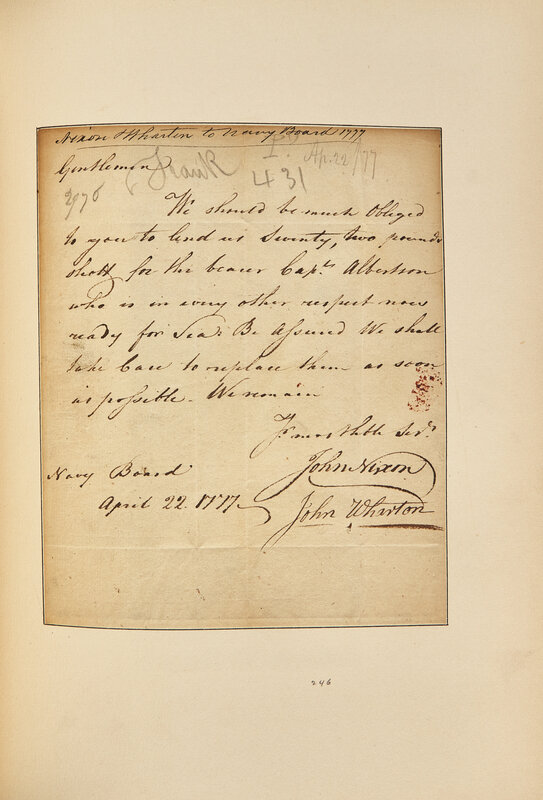 Nixon & Wharton to Navy Board 1777
Gentlemen
Frank
Ap. 22/77
431
We should be much Obliged
to you to lend us Twenty, two pound
shott for the bearer Capt. Albertson
who is in every other respect now
ready for Sea. Be Assured We shall
take Care to replace them as soon
as possible. We remain
Yr. most Hble Servt.
John Nixon
Navy Board
April 22. 1777
John Wharton
246